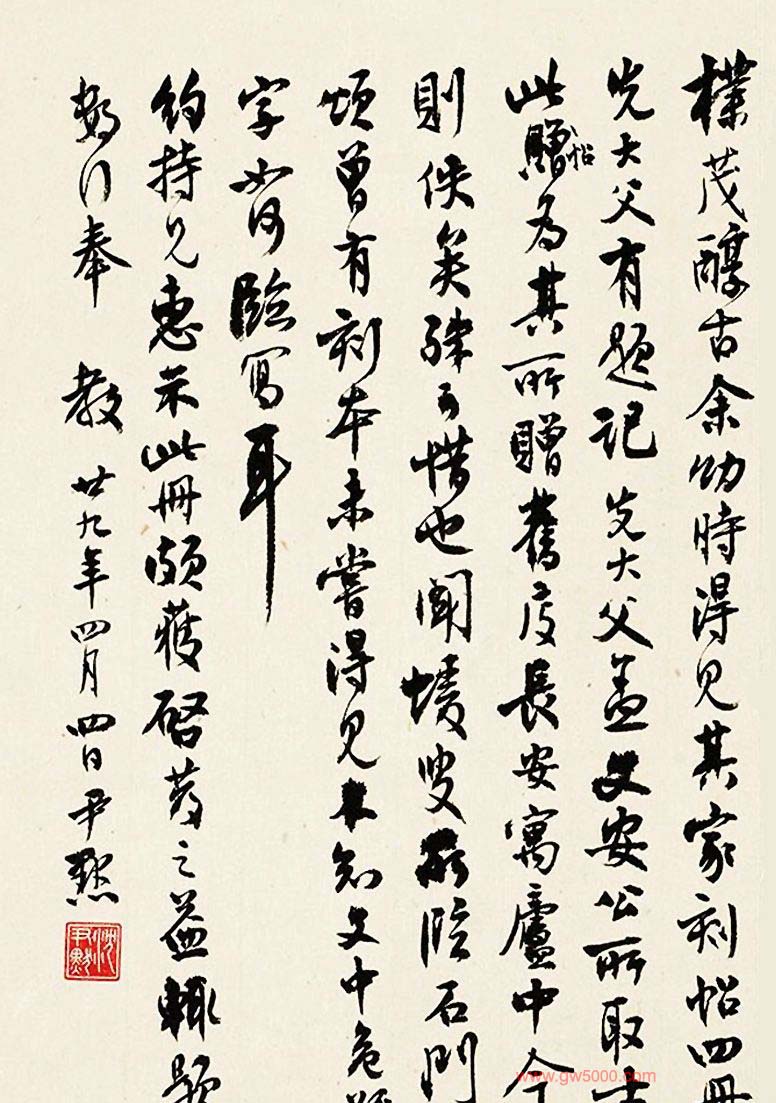 樸茂醇古余幼時得見其家刻帖四冊
先大父有題記先大父盖文安公所取士
此贈為其所贈舊庋長安寓廬中今
帖
則佚矣殊可惜也聞蝯叟所臨石門
頌曾有刻本未嘗得見未知文中危
字曾臨寫耳
約持見惠示此冊頗獲啓蒙之益輒題
數行奉 教 廿九年四月四日尹默
沈尹默
www.gw5000.com